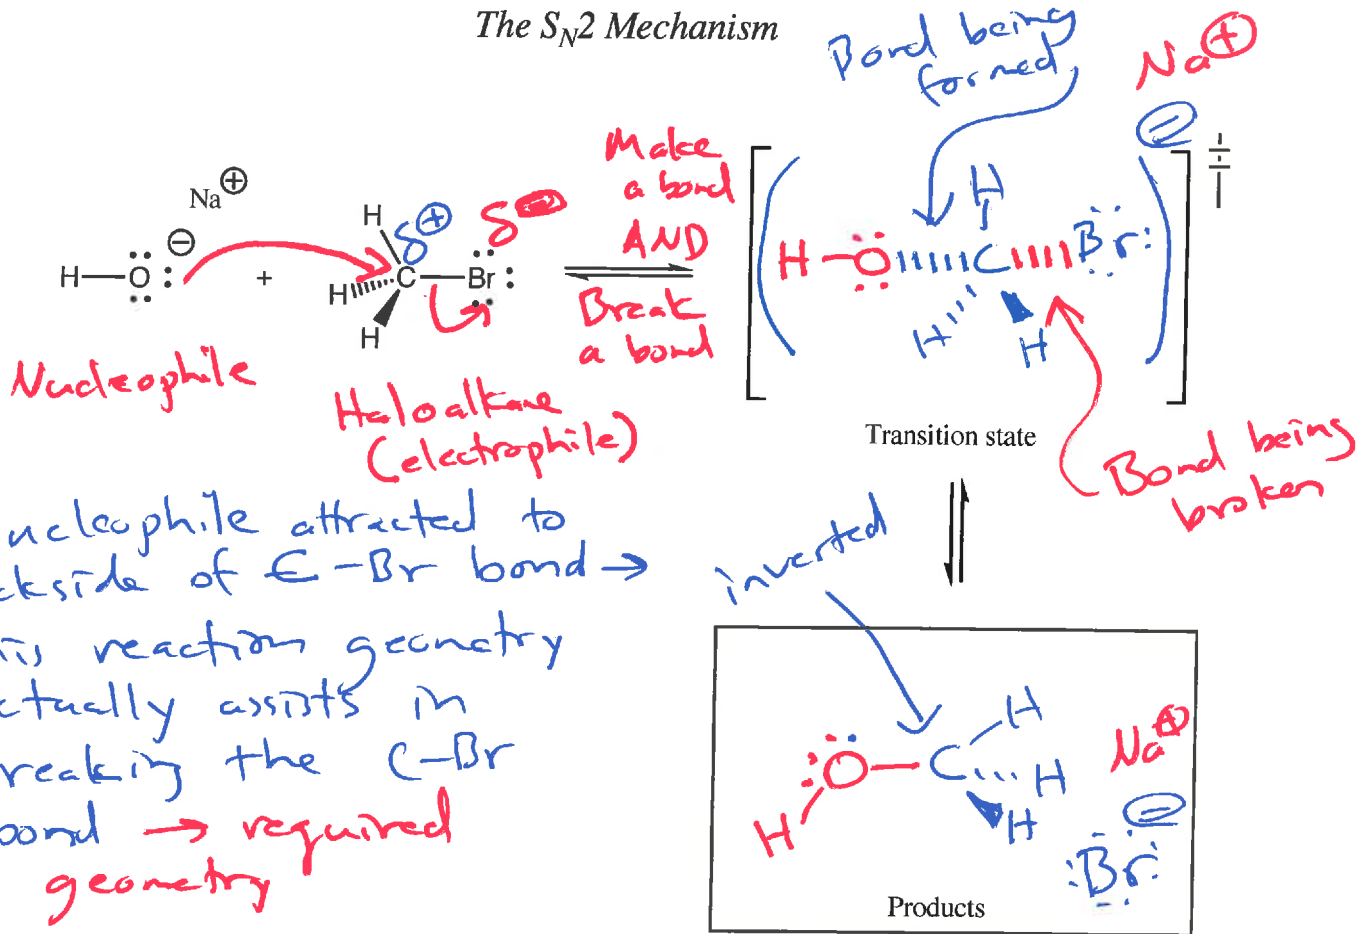 The SN2 Mechanism
Bond being
formed
Na⊕
⊖
Na⊕
Make
a bond
AND
Break
a bond
H—O:⊖ + H H H C—Br: δ⊕ δ⊖
H—O C Br: H H H
‡
Nucleophile
Haloalkane
(electrophile)
Transition state
Bond being
broken
nucleophile attracted to
ckside of C-Br bond →
is reaction geometry
ctually assists in
reaking the C-Br
bond → required
geometry
inverted
H O—C H H H
Na⊕
:Br: ⊖
Products